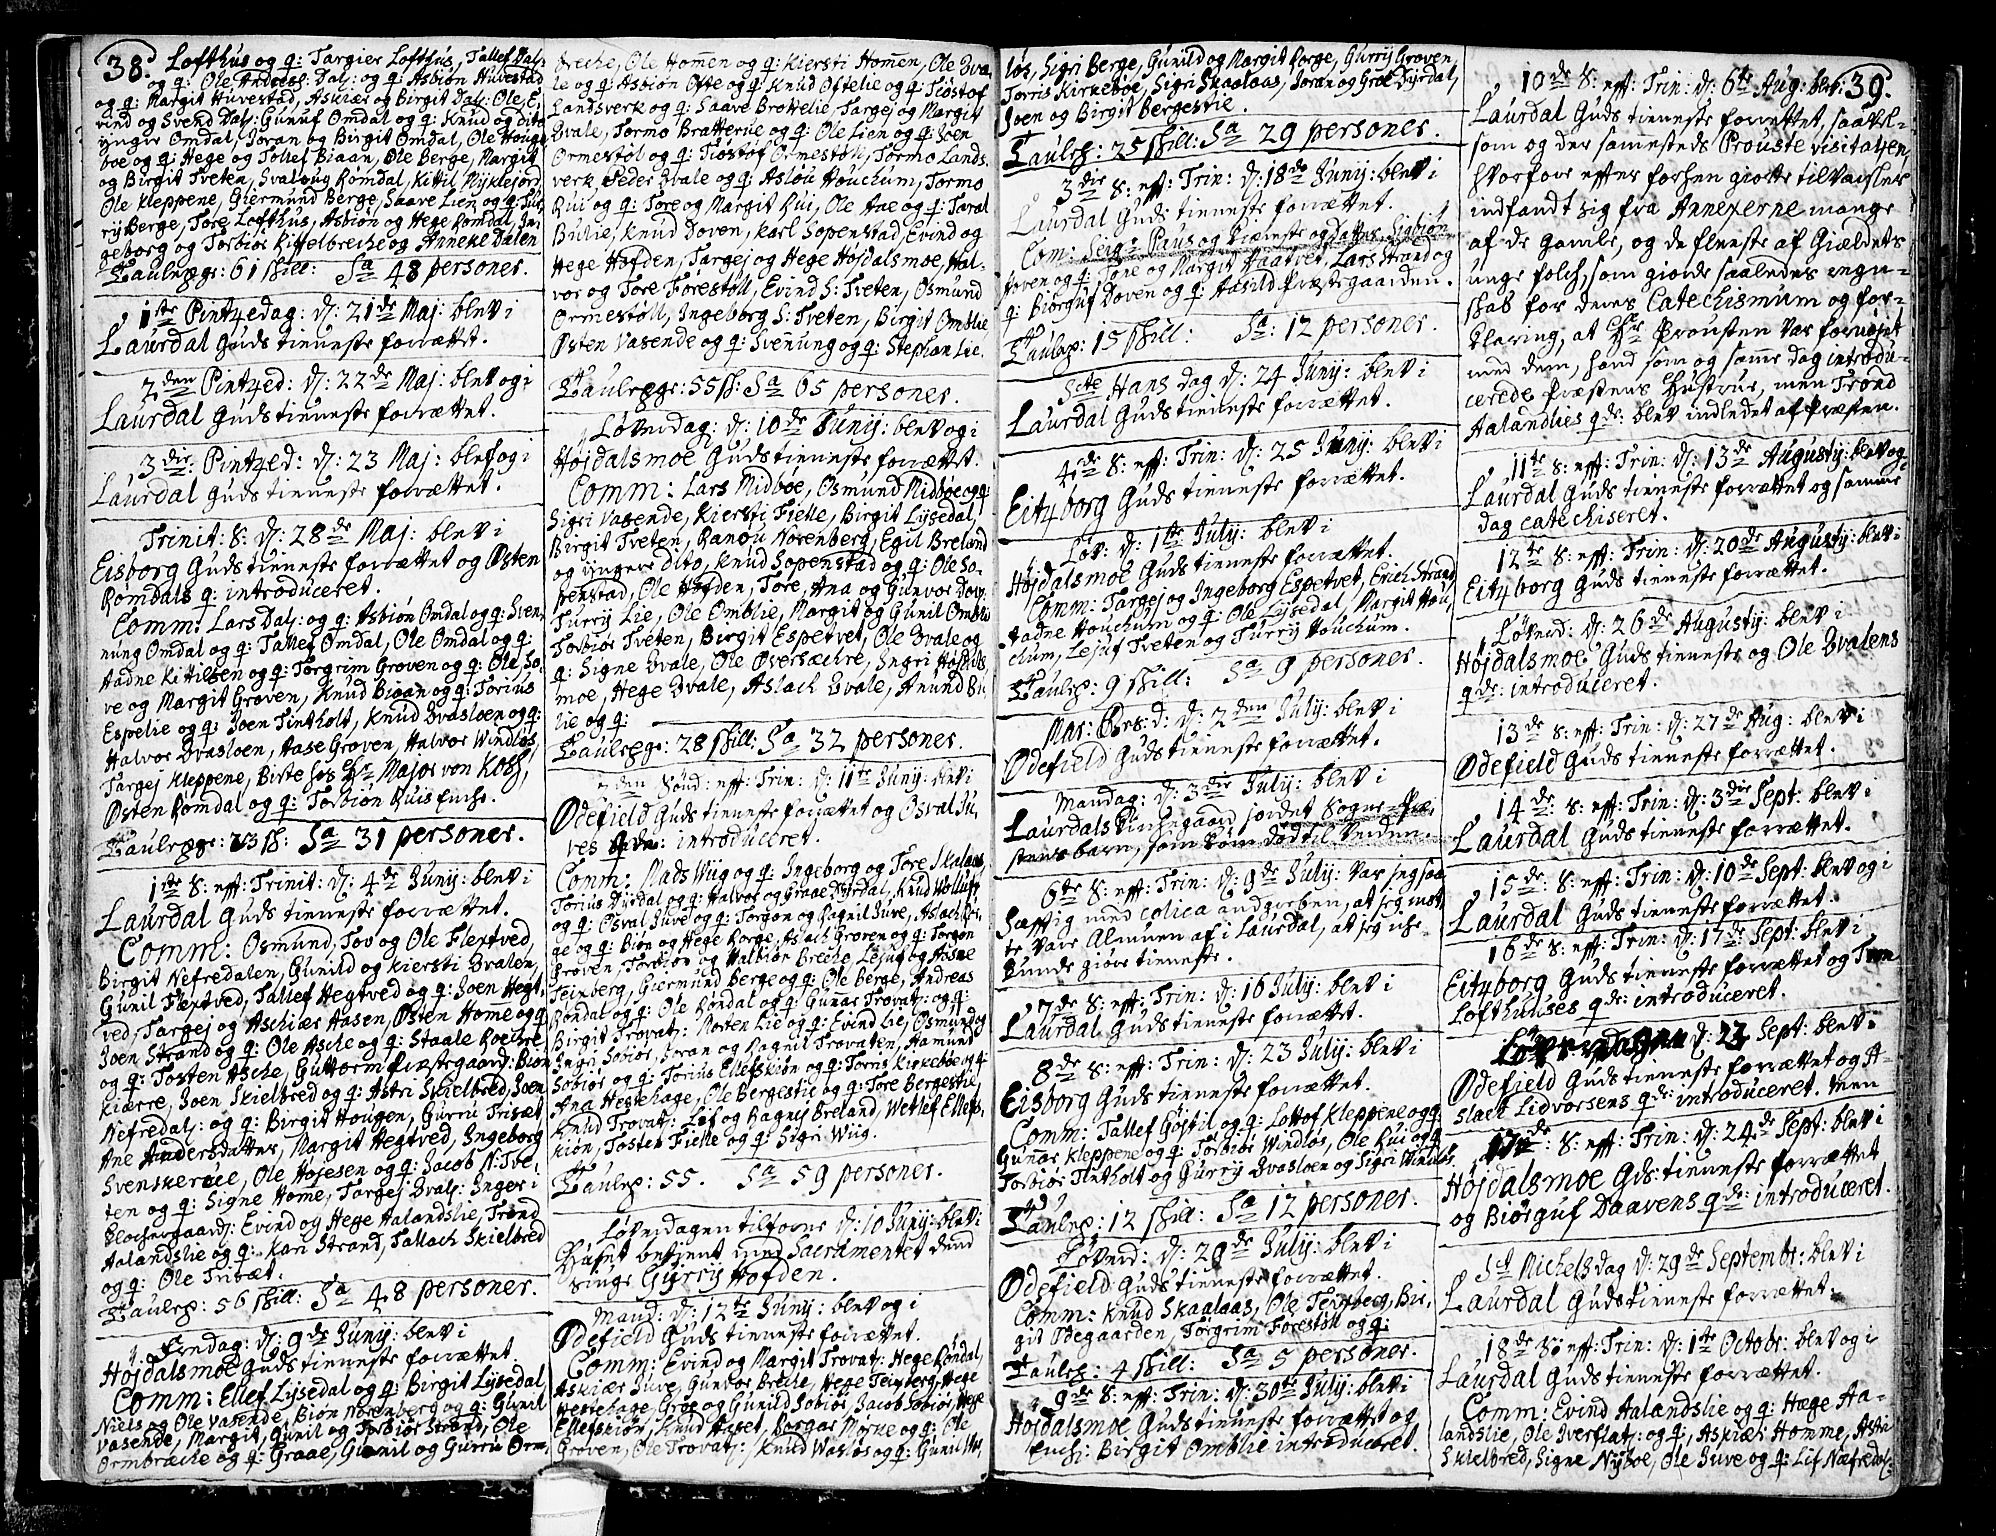 38.
Lofthus og q: Targier Lofthus, Tallef Dalj:
og q: Ole Andreæ: Dalj: og q: Asbiøn Huvestad
og q: Margit Huvestad, Askiær og Birgit Dalj: Ole, E,
vind og Svend Dalj: Gunuf Omdal og q: Knud og dito
yngre Omdal, Joran og Birgit Omdal, Ole Houge
boe og q: Hege og Tollef Biaan, Ole Berge, Margit
og Birgit Tveten, Svalaug Romdal, Kittil Myklejord
Ole Kleppene, Giermund Berge, Saave Lien og q: Gur
rij Berge, Tore Lofthus, Asbiøn og Hege Romdal, In
geborg og Torbiør Kittelbreche og Anneke Dalen
Taulepge: 61 skill: Sa 48 personer.
1ste Pintzedag: d: 21de Maj: blev i
Laurdal Guds tienneste forrættet.
2den Pintzed: d: 22de Maj: blev og i
Laurdal Guds tienneste forrættet.
3die Pintzed: d: 23 Maj: blef og i
Laurdal Guds tienneste forrættet.
Trinit: S: d: 28de Maj: blev i
Eisborg Guds tienneste forrættet og Østen
Romdals q: introduceret.
Comm: Lars Dalj: og q: Asbiøn Omdal og q: Sven
nung Omdal og q: Tallef Omdal, Ole Omdal og q:
Aadne Kittilsen og q: Torgrim Groven og q: Ole, So
ve og Margit Groven, Knud Bioan og q: Torius
Espelie og q: Joen Tintholt, Knud Qvasloen og q:
Halvor Qvasloen, Aase Groven, Halvor Windløs,
Targej Kleppene, Birte hos Hr Major von Koss,
Østen Romdal og q: Torbiøn Ruisfuche.
Taulepge: 23 sk: Sa 31 personer.
1ste S: eff: Trinit: d: 4de Junij: blev i
Laurdal Guds tienneste forrættet.
Comm: Osmund, Tov og Ole Flextved,
Birgit Nefredalen, Gunild og Kiersti Qvalen,
Gunil Flextved, Tallef Hegtved og q: Joen Hegt,
ved, Targej og Aschiær Aasen, Østen Home og q
Joen Strand og q: Ole Asche og q: Staale Roeikre
og q: Tosten Asche, Guttorm Præstegaard: Bion
Kiærre, Joen Skielbred og q: Astri Skielbred, Joen
Nefredalj: og q: Birgit Hougen, Gurru Trisæt
Ane Andersdatter, Margit Hegtved, Ingeborg
Svenskerüe, Ole Hojesen og q: Jacob N: Tve,
ten og q: Signe Home, Targej Qvalj: Inger i
Klochergaard: Evind og Hege Aalandslie, Trond
Aalandslie og q: Kari Strand, Tallach Skielbred
og q: Ole Trisæt.
Taulep: 56 skill: Sa 48 personer.
Fredag: d: 9de Junij: blev i
Højdalsmoe Guds tienneste forrættet
Comm: Ellef Lijsedal og q: Birgit Lijsedal
Niels og Ole Vasende, Biøn Norenberg og q: Gunil
Vasende, Margit, Gunil og Torbiør Strand, Ole
Ormbrache og q: Graae, Gunil og Gurru Orm,
breche, Ole Homen og q: Kiersti Homen, Ole Qva
le og q: Asbiøn Ofte og q: Knud Oftelie og q: Tiostof
Landsverk og q: Saave Brottelie, Targej og Margit
Qvale, Tormo Bratterue og q: Ole Lien og q: Joen
Ormestøl og q: Tiostof Ormestøll, Tormo Lands,
verk, Peder Qvale og q: Aslou Houchum, Tormo
Rui og q: Tore og Margit Rui, Ole Aae og q: Taral
Bialie, Knud Doven, Karl Sopenstad, Evind og
Hege Hofden, Targej og Hege Højdalsmoe, Hal,
vor og Tore Forestøll, Evind S: Tveten, Osmund
Ormestøll, Ingeborg S: Tveten, Birgit Omblie
Østen Vasende og q: Svenung og q: Stephan Lie.
Taulepge: 55 sk: Sa 65 personer.
Løverdag: d: 10de Junij: blev og i
Højdalsmoe Guds tienneste forrættet.
Comm: Lars Midbøe, Osmund Midbøe og q:
Sigri Vasende, Kiersti Fielle, Birgit Lijsedal,
Birgit Tveten, Ranou Norenberg, Egil Breland
og ijngere dito, Knud Sopenstad og q: Ole So,
penstad, Ole Hofden, Tore, Ana og Gunvor Dov,
Turrij Lie, Ole Omblie, Margit og Gunil Omblie
Torbiør Tveten, Birgit Espetvet, Ole Qvale og
q: Signe Qvale, Ole Oversechre, Ingri Højdals
moe, Hege Qvale, Aslach Qvale, Anund Bu
lie og q:
Taulepge: 28 skill: Sa 32 personer.
2den Sønd: eff: Trin: d: 11te Junij: blev i
Ødefield Guds tienneste forrættet og Osval Ju,
ves qvde: introduceret.
Comm: Mads Wiig og q: Ingeborg og Tore Skalaas,
Torius Husdal og q: Halvor og Graae Dyrdal, Knud Wollust
og q: Osval Juve og q: Torgon og Ragnil Juve, Aslach Bei
ge og q: Bion og Hege Rorge, Aslach Groven og q: Torgon
Groven, Torbiør og Halbior Breche, Lejuf og Aasne
Teinberg, Giermund Berge og q: Ole Berge, Andreas
Rondal og q: Ole Rondal og q: Gunar Trovatj: og q:
Birgit Trovatj: Mosten Lie og q: Evind Lie, Osmund og
Ingri Sobior, Joran og Ragnil Trovatten, Aamund
Sobior og q: Torius Ellefskiøn og q: Torris Kirkebøe og q
Ana Hegtehage, Ole Bergestie og q: Tore Bergestie,
Knud Trovatj: Lof og Ragnij Breland, Wetlef Ellefs,
kiøn, Tosten Fielle og q: Sigri Wiig.
Taulep: 55. Sa 59 personer.
Løverdagen tilforne d: 10 Junij: blev i
Huset betient med Sacramentet dend
Singe Gijrrij Hofden.
Mand: d: 12te Junij: blev og i
Ødefield Guds tienneste forrættet.
Comm: Evind og Margit Trovatj: Hege Rondal,
Askiær Juve, Gunvor Breche, Hege Teinberg, Hege
Hegtehage, Groe og Gunild Sobior, Jacob Sobior, Hege
Ellefskiøn, Knud Huset, Borgar Mørne og q: Ole
Groven, Ole Trovatj: Knud Wasløs og q: Gunil Wa,
løs, Sigri Berge, Gunild og Margit Rorge, Gurrij Groven,
Torris Kirkebøe, Sigri Skaalaas, Joran og Groe Dyrdal,
Joen og Birgit Bergestie.
Taulep: 25 skill: Sa 29 personer.
3die S: eff: Trin: d: 18de Junij: blev i
Laurdal Guds tienneste forrættet.
Com: Serg: Paus og Kiæreste og Datter, Sigbiøn
Hoven og q: Tore og Margit Haatvet, Lars Strand og
q: Biorguf Doven og q: Aasild Præstgaarden.
Taulep: 15 skill: Sa: 12 personer.
Scte Hans dag d: 24 Junij: blev i
Laurdal Guds tienneste forrættet.
4de S: eff: Trin: d: 25 Junij: blev i
Eitzborg Guds tienneste forrættet.
Løv: d: 1ste Julij: blev i
Højdalsmoe Guds tienneste forrættet.
Comm: Targej og Ingeborg Espetvet, Erich Strand
Aadne Houchum og q: Ole Lijsedal, Margit Hou,
chum, Lejuf Tveten og Turrij Houchum.
Taulep: 9 skill: Sa 9 personer.
Mar: Øes: d: d: 2den Julij: blev i
Ødefield Guds tienneste forrættet.
Mandag: d: 3die Julij: blev i
Laurdals Kirkegaard jordet Sogne-Præ
stens barn, som kom død til Verden.
6te S: eff: Trin: d: 9de Julij: var jeg saa
hæfftig med colica andgreben, at jeg mot,
te vare Almuen af i Laurdal, at jeg iche
kunde giøre tieneste.
7de S: eff: Trin: d: 16 Julij: blev i
Laurdal Guds tienneste forrættet.
8de S: eff: Trin: d: 23 Julij: blev i
Eisborg Guds tienneste forrættet.
Comm: Tallef Gøjtil og q: Lottof Kleppene og q
Gunar Kleppene og q: Torbiør Windløs, Ole Rui og q
Torbiør Tintholt og Gurrij Qvasloen og Sigri Windløs
Taulep: 12 skill: Sa 12 personer.
Løverd: d: 29de Julij: blev i
Ødefield Guds tienneste forrættet.
Comm: Knud Skaalaas, Ole Teinberg, Bir,
git Odegaarden, Torgrim Forestøll og q:
Taulep: 4 skill: Sa 5 personer.
9de S: eff: Trin: d: 30te Julij: blev i
Højdalsmoe Guds tienneste forrættet og
Ench: Birgit Omblie introduceret.
39.
10de S: eff: Trin: d: 6te Aug: blev i
Laurdal Guds tienneste forrettet, saavel-
som og der samesteds Prouste visitatzen,
hvorfore effter forhen giorte tilvarsler
indfandt sig fra Annexerne mange
af de Gamle, og de fleeste af Gieldets
unge folch, som giorde saaledes regn-
skab for deres Catechismum og for-
klaring, at Hr Prousten var fornøjet
med dem, hand som og samme dag introdu-
cerede Præstens Hustrue, men Trond
Aalandlies qde: blev indledet af Præsten.
11te S: eff: Trin: d: 13de Augustij: blev og i
Laurdal Guds tienneste forrættet og samme
dag catechiseret.
12te S: eff: Trin: d: 20de Augustij: blev i
Eitzborg Guds tienneste forrættet.
Løverd: d: 26de Augustij: blev i
Højdalsmoe Guds tienneste og Ole Qvalens
qde: introduceret.
13de S: eff: Trin: d: 27de Aug: blev i
Ødefield Guds tienneste forrættet.
14de S: eff: Trin: d: 3die Sept: blev i
Laurdal Guds tienneste forrættet.
15de S: eff: Trin: d: 10de Sept: blev og i
Laurdal Guds tienneste forrættet.
16de S: eff: Trin: d: 17de Sept: blev i
Eitzborg Guds tienneste forrættet og Tron
Lofthuuses qde: introduceret.
Løverdagen d: 23 Sept: blev i
Ødefield Guds tienneste forrættet og A-
slach Lidvorsens qde: introduceret. Men
17de S: eff: Trin: d: 24de Sept: blev i
Højdalsmoe Gds tienneste forrættet
og Biørguf Daavens qde: introduceret.
Sct Michels dag d: 29de Septembr: blev i
Laurdal Guds tienneste forrættet.
18de S: eff: Trin: d: 1ste Octobr: blev og i
Laurdal Guds tienneste forrættet.
Comm: Evind Aalandslie og q: Hæge Aa-
landslie, Ole Iverflatj: og q: Askiær Homme, Astri
Skielbred, Signe Nyboe, Ole Juve og q: Lif Næfredalj: